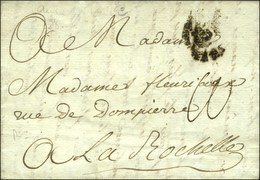 A Madame
Madame fleurisson
rue de Dompierre
A La Rochelle